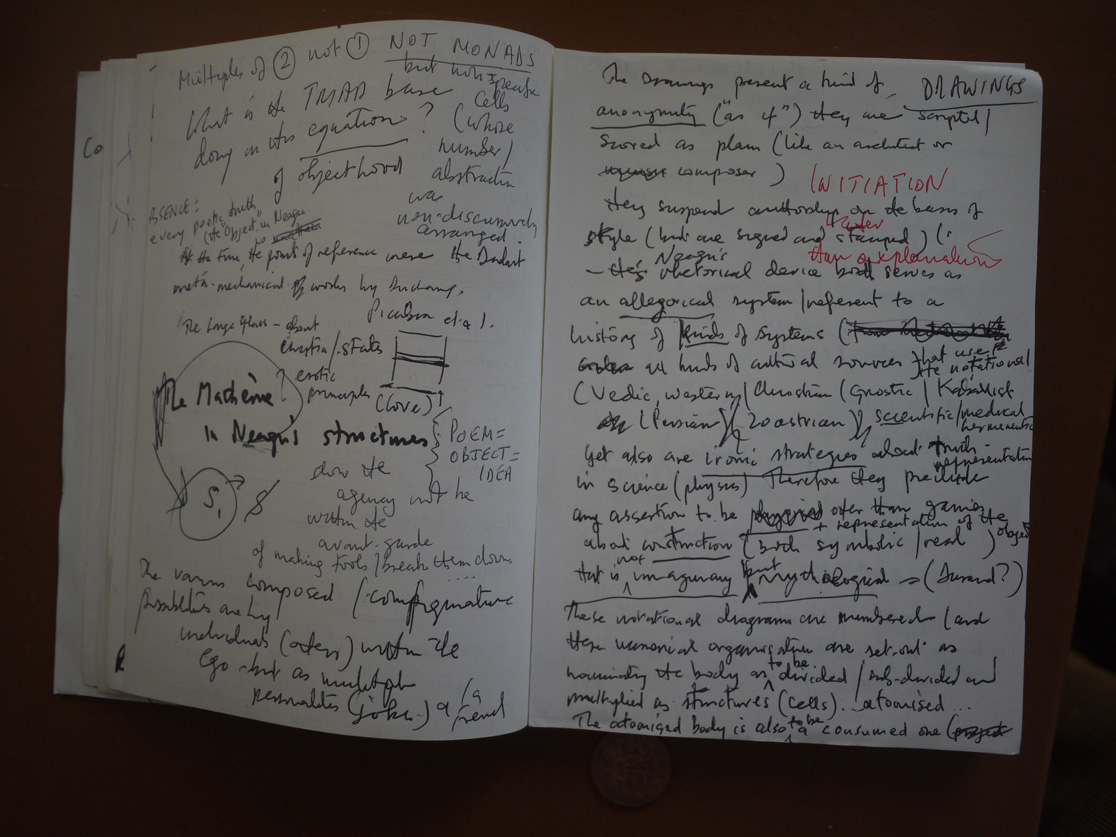 Multiples of ② not ① NOT MONADS
but non specific
cells
(whose
number/
abstraction
was
non-discursively
arranged.
What is the TRIAD base
doing in this equation?
of objecthood
ABSENCE:
every poetic truth
(the "Object" in Neagu
At the time the points of reference were the Dadaist
meta-mechanical works by Duchamp,
Picabia et al.
The Large Glass - about
/ states
erotic
principles
(Love)
The Mathème
in Neagu's structures
POEM=
OBJECT=
IDEA
S1
does the
agency not lie
within the
avant-garde
of making tools / break them down
....
The various composed / configurative
possibilities are his
individuals (others) within the
Ego - but as multiple
personalities (joke) a (a
friend
Co
The Drawings present a kind of DRAWINGS
anonymity ("as if") they are scripted/
scored as plans (like an architect or
composer)
INITIATION
they suspend authorship on the basis of
style (but are signed and stamped) (
rather
than explanation
Neagu's
rhetorical device both serves as
an allegorical system / referent to a
history of kinds of systems (
all kinds of cultural sources that use
the notational!
(Vedic, western / Christian (Gnostic / Kabbalist
(Persian) (Zoastrian) scientific/medical
hermeneutic
yet also are ironic strategies about truth
representation
in science (physics) Therefore they preclude
any assertion to be other than games
+ representation of the
object
about construction (both symbolic / real)
that is not imaginary but mythological = (Durand?)
These notational diagrams are numbered (and
these numerical organigrams are set out as
nominating the body as to be divided / sub-divided and
multiplied as structures (cells).. atomised...
The atomised body is also to be a consumed one (